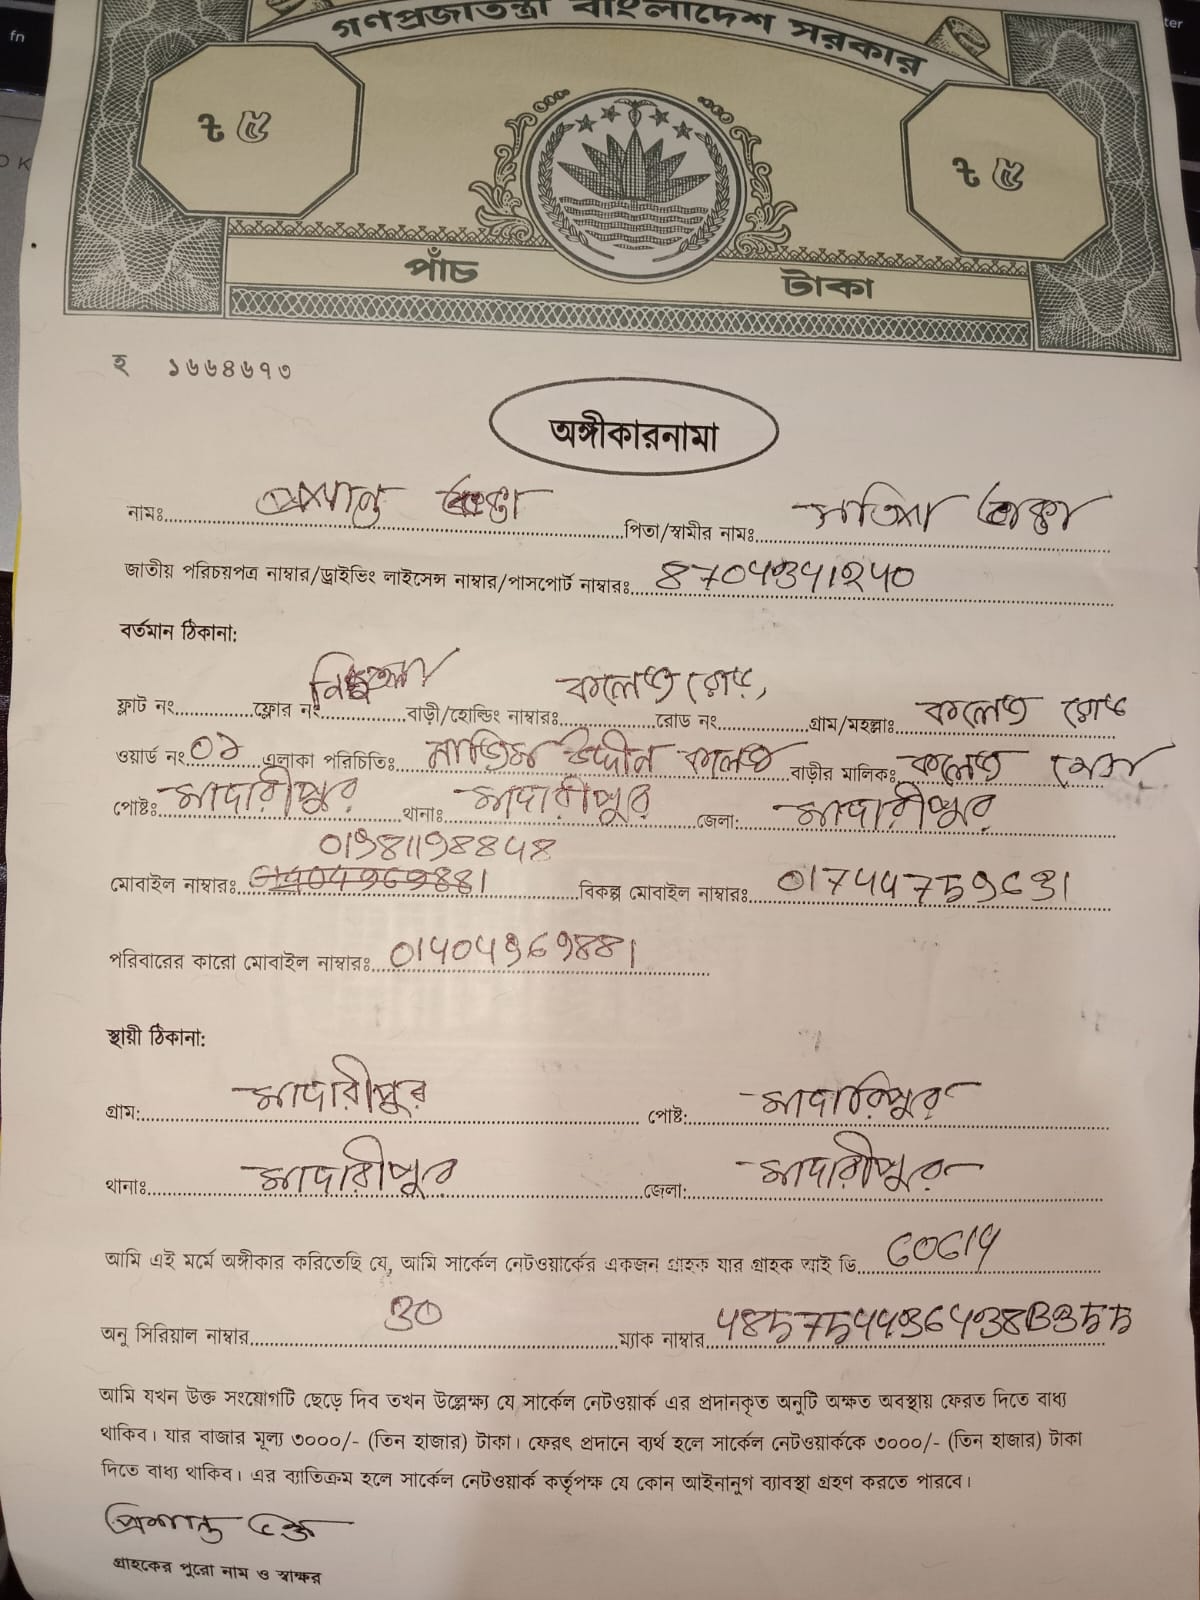 fn
গণপ্রজাতন্ত্রী বাংলাদেশ সরকার
৳ ৫
৳ ৫
পাঁচ টাকা
হ ১৬৬৪৬৭৩
অঙ্গীকারনামা
নামঃ পিতা/স্বামীর নামঃ
জাতীয় পরিচয়পত্র নাম্বার/ড্রাইভিং লাইসেন্স নাম্বার/পাসপোর্ট নাম্বারঃ
বর্তমান ঠিকানা:
ফ্লাট নং ফ্লোর নং বাড়ী/হোল্ডিং নাম্বারঃ কলেজ রোড, রোড নং গ্রাম/মহল্লাঃ কলেজ রোড
ওয়ার্ড নং ০১ এলাকা পরিচিতিঃ নাজিম উদ্দীন কলেজ বাড়ীর মালিকঃ কলেজ
পোষ্টঃ মাদারীপুর থানাঃ মাদারীপুর জেলা: মাদারীপুর
মোবাইল নাম্বারঃ বিকল্প মোবাইল নাম্বারঃ
পরিবারের কারো মোবাইল নাম্বারঃ
স্থায়ী ঠিকানা:
গ্রাম: মাদারীপুর পোষ্ট: মাদারিপুর
থানাঃ মাদারীপুর জেলা: মাদারীপুর
আমি এই মর্মে অঙ্গীকার করিতেছি যে, আমি সার্কেল নেটওয়ার্কের একজন গ্রাহক যার গ্রাহক আই ডি
অনু সিরিয়াল নাম্বার 30 ম্যাক নাম্বার
আমি যখন উক্ত সংযোগটি ছেড়ে দিব তখন উল্লেক্ষ্য যে সার্কেল নেটওয়ার্ক এর প্রদানকৃত অনুটি অক্ষত অবস্থায় ফেরত দিতে বাধ্য
থাকিব। যার বাজার মূল্য ৩০০০/- (তিন হাজার) টাকা। ফেরৎ প্রদানে ব্যর্থ হলে সার্কেল নেটওয়ার্ককে ৩০০০/- (তিন হাজার) টাকা
দিতে বাধ্য থাকিব। এর ব্যাতিক্রম হলে সার্কেল নেটওয়ার্ক কর্তৃপক্ষ যে কোন আইনানুগ ব্যাবস্থা গ্রহণ করতে পারবে।
প্রশান্ত
গ্রাহকের পুরো নাম ও স্বাক্ষর